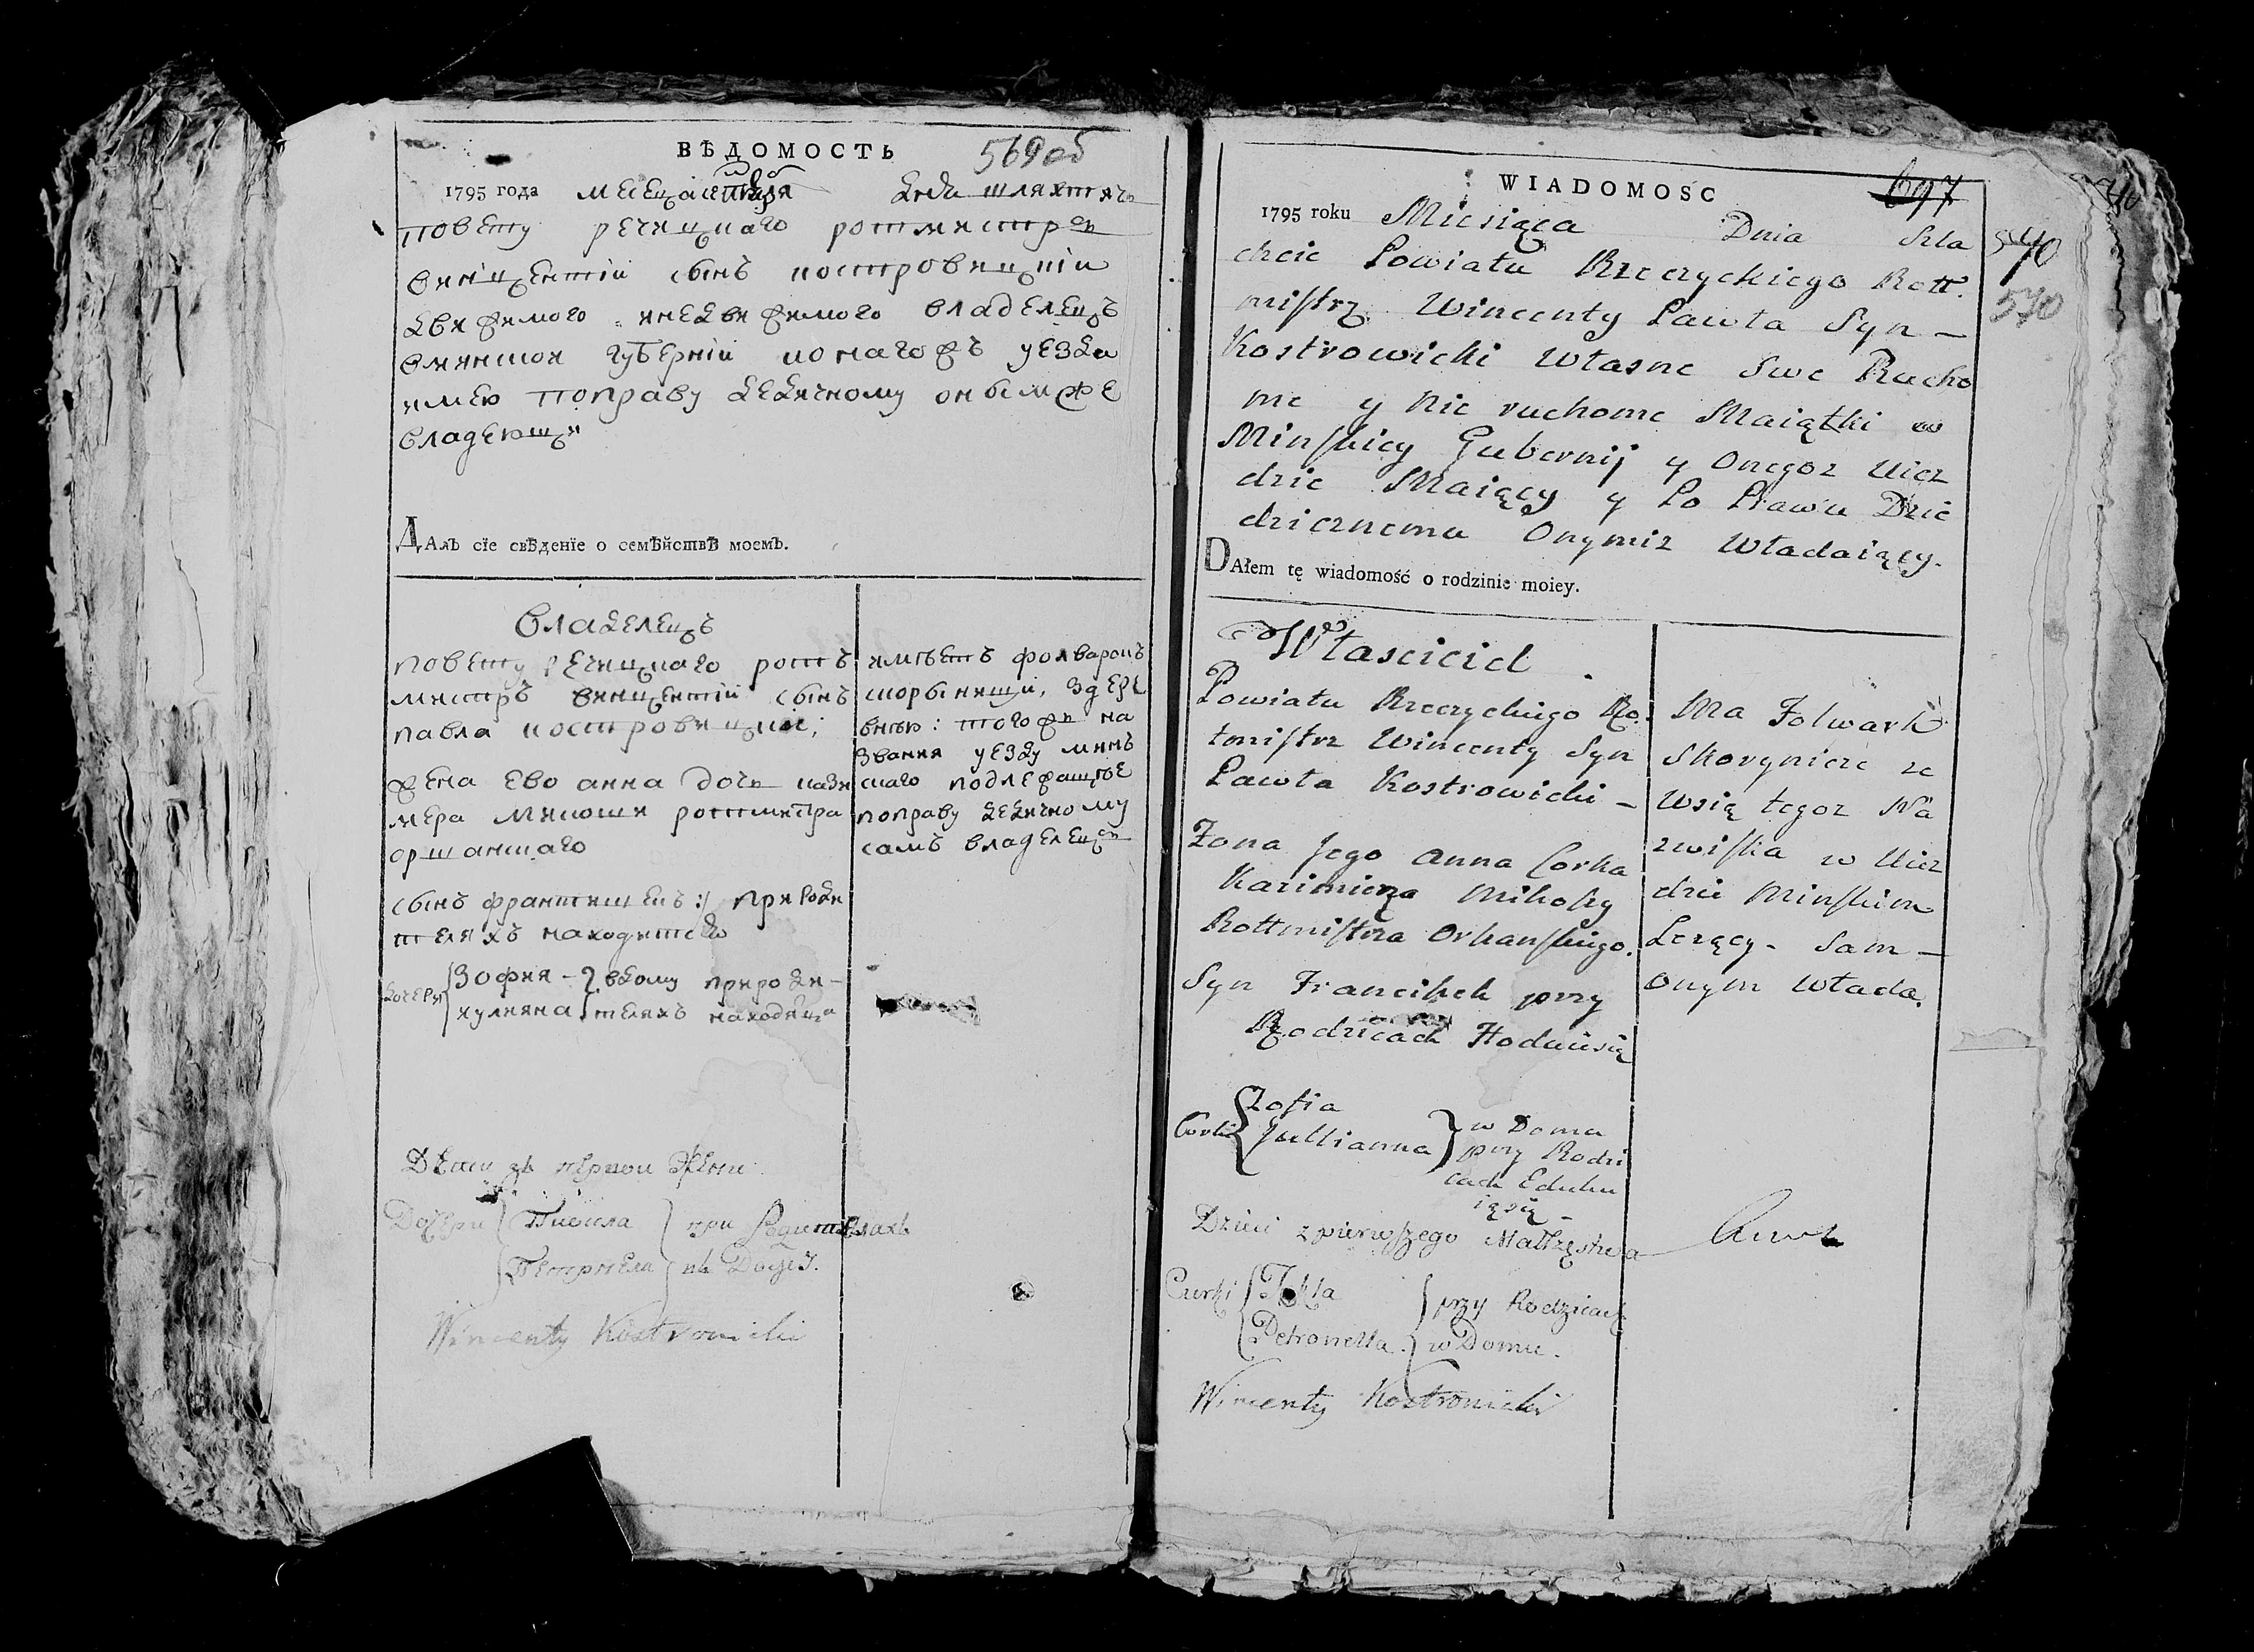 ВѢДОМОСТЬ
569 об
1795 года месеца дня шляхтичъ
повету речицкаго ротмистръ
винцентій сынъ костровицкіи
движимого инедвижимого владелецъ
вминской губерніи и онагожъ уезда
имею поправу дедичному онымже
владеющи
ДАлъ сїе свѣденїе о семѣйствѣ моемъ.
Владелецъ
повету речицкаго рот
мистръ винцентій сынъ
павла костровицкіи;
жена ево анна дочь кази
мера микоши ротмистра
оршанскаго
сынъ францишекъ: при роди
теляхъ находится
дочери зофия вдому при роди-
юлияна теляхъ находяца
имѣетъ фолваронъ
скорыничи, здере
внею: тогожъ на
звания уезду мин
скаго подлежащое
поправу дедичному
самъ владелецъ
Дети зъ первои жены
Дочери Текла при Родителахъ
Петронела въ Дому.
Wincenty Kostrowicki
WIADOMOSC
697
1795 roku Miesiąca Dnia Szla
570
570
chcic Powiatu Rzeczyckiego Rott.
mistrz Wincenty Pawła Syn –
Kostrowicki Własne Swe Rucho
me y Nie ruchome Maiątki w
Minskiey Gubernij y Onegoz Uiez
dzie Maiący y Po Prawu Dzie
dzicznemu Onymiz Władaiący.
DAłem tę wiadomość o rodzinie moiey.
Własciciel
Powiatu Rzeczyckiego Ro.
tmistrz Wincenty Syn
Pawła Kostrowicki –
Zona Jego Anna Corka
Kazimierza Mikoszy
Rottmistrza Orszanskiego.
Syn Franciszek przy
Rodzicach Hoduiesię
Corki Zofia
Jullianna w Domu
przy Rodzi
cach Eduku
ią się –
Dzieci z pierwszego Małżęstwa
Curki Tekla przy Rodzicach
Petronella. w Domu.
Wincenty Kostrowicki
Ma Folwark
Skorynicze ze
Wsią tegoz Na
zwiska w Uiez
dzie Minskim
Lezący. Sam –
Onym Włada.